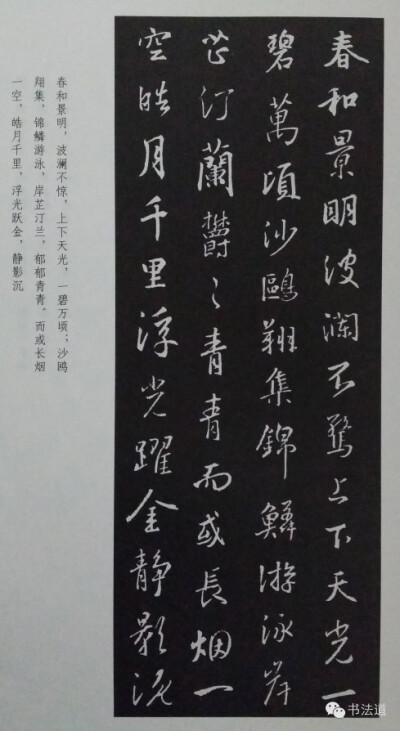 春和景明波瀾不驚上下天光一
碧萬頃沙鷗翔集錦鱗游泳岸
芷汀蘭鬱〻青青而或長烟一
空皓月千里浮光躍金静影沉
春和景明，波澜不惊，上下天光，一碧万顷；沙鸥
翔集，锦鳞游泳，岸芷汀兰，郁郁青青。而或长烟
一空，皓月千里，浮光跃金，静影沉
书法道